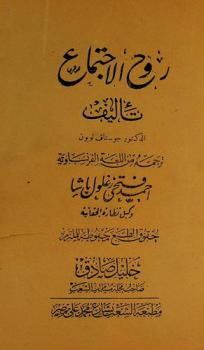 روح الاجتماع
تأليف
الدكتور جوستاف لوبون
ترجمه من اللغة الفرنساوية
أحمد فتحي زغلول باشا
وكيل نظارة الحقانية
حقوق الطبع محفوظة للملتزم
خليل صادق
صاحب مسامرات الشعب
مطبعة الشعب بشارع محمد علي بمصر